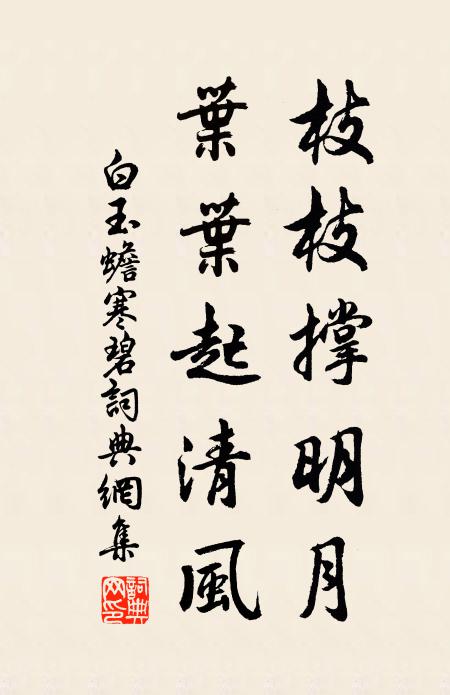 枝枝撐明月
葉葉起清風
白玉蟾寒碧詞典網集
詞典网印